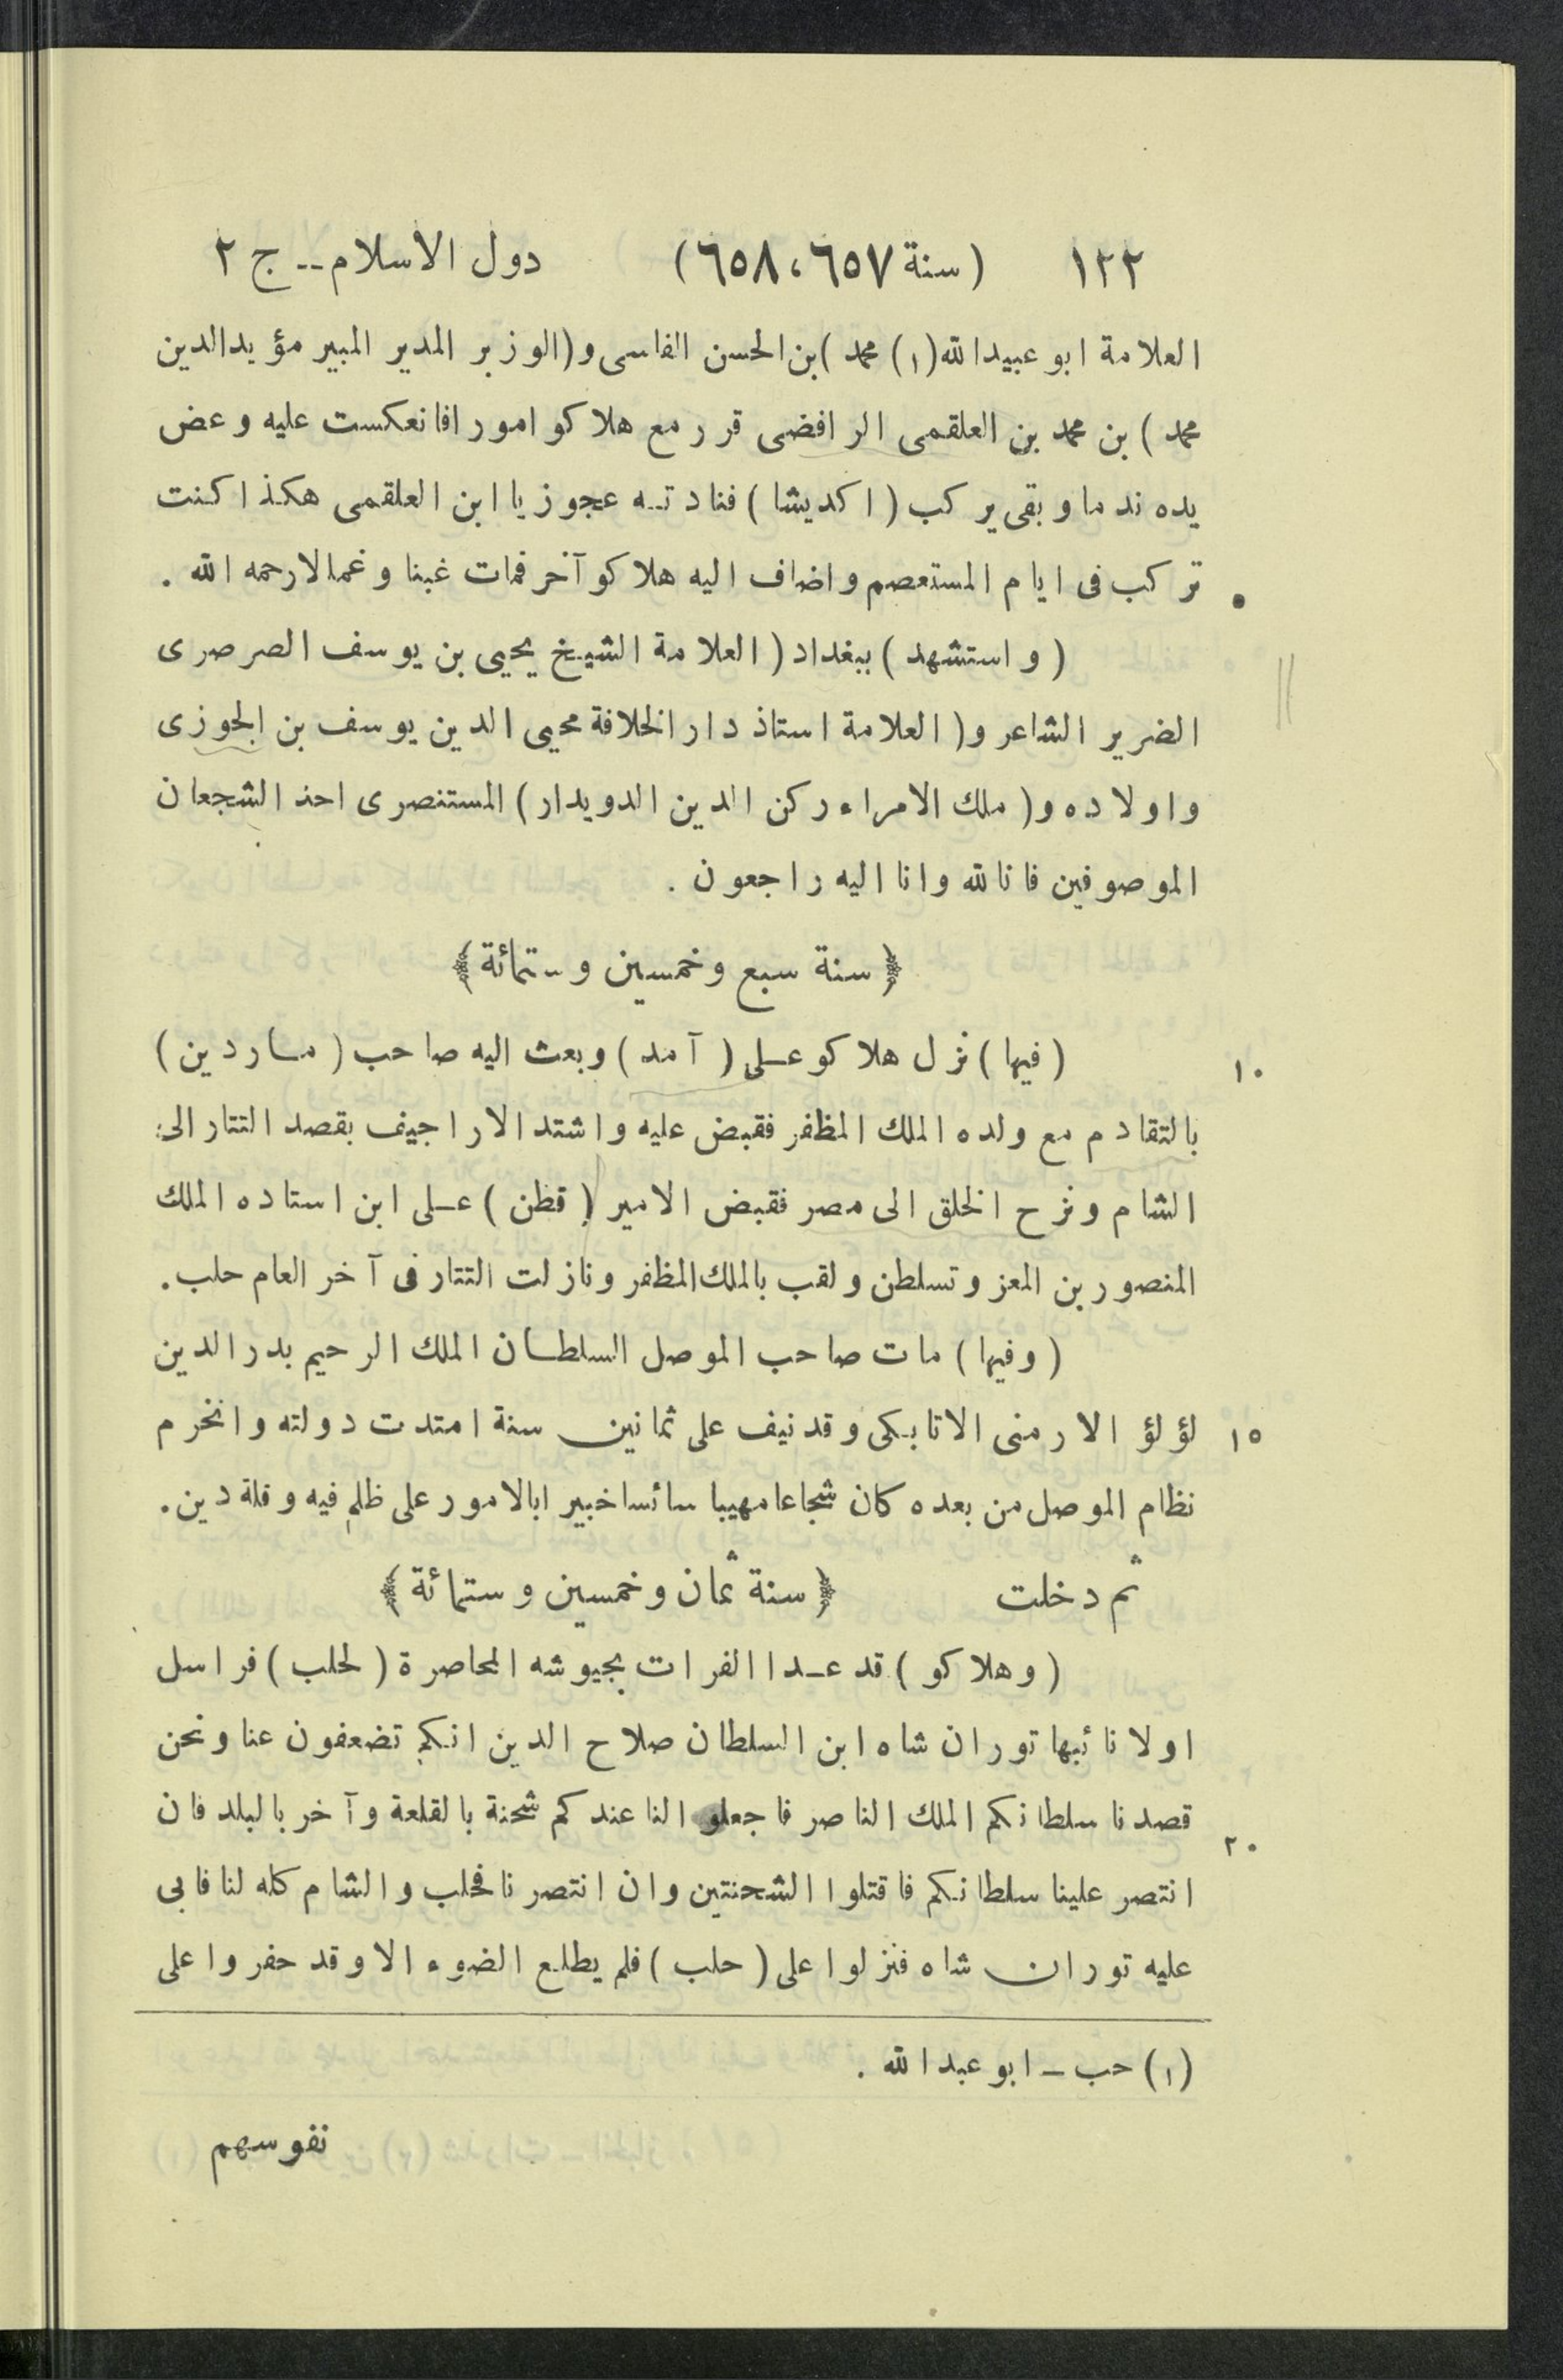 ١٢٢ (سنة ٦٥٧، ٦٥٨) دول الاسلام -- ج ٢
العلامة ابو عبيدالله (١) محمد) بن الحسن الفاسى و(الوزير المدبر المبير مؤيدالدين
محمد) بن محمد بن العلقمى الرافضى قرر مع هلاكو امورا فانعكست عليه وعض
يده ندما وبقى يركب (اكديشا) فنادته عجوز يا ابن العلقمى هكذا كنت
تركب فى ايام المستعصم واضاف اليه هلاكو آخر فمات غبنا وغمالارحمه الله .
(واستشهد) ببغداد (العلامة الشيخ يحيى بن يوسف الصرصرى
الضرير الشاعر و(العلامة استاذ دار الخلافة محيى الدين يوسف بن الجوزى
واولاده و(ملك الامراء ركن الدين الدويدار) المستنصرى احذ الشجعان
الموصوفين فانالله وانا اليه راجعون .
﴿ سنة سبع وخمسين وستمائة ﴾
١٠ (فيها) نزل هلاكو على (آمد) وبعث اليه صاحب (ماردين)
بالتقادم مع ولده الملك المظفر فقبض عليه واشتد الاراجيف بقصد التتار الى
الشام ونزح الخلق الى مصر فقبض الامير (قطن) على ابن استاده الملك
المنصور بن المعز وتسلطن ولقب بالملك المظفر ونازلت التتار فى آخر العام حلب.
(وفيها) مات صاحب الموصل السلطان الملك الرحيم بدر الدين
١٥ لؤلؤ الارمنى الاتابكى وقد نيف على ثمانين سنة امتدت دولته وانخرم
نظام الموصل من بعده كان شجاعا مهيبا سائسا خبيرا بالامور على ظلم فيه وقلة دين.
ثم دخلت ﴿ سنة ثمان وخمسين وستمائة ﴾
(وهلاكو) قد عدا الفرات بجيوشه المحاصرة (لحلب) فراسل
اولا نائبها توران شاه ابن السلطان صلاح الدين انكم تضعفون عنا ونحن
٢٠ قصدنا سلطانكم الملك الناصر فاجعلوا لنا عندكم شحنة بالقلعة وآخر بالبلد فان
انتصر علينا سلطانكم فاقتلوا الشحنتين وان انتصرنا فحلب والشام كله لنا فابى
عليه توران شاه فنزلوا على (حلب) فلم يطلع الضوء الا وقد حفروا على
(١) حب - ابو عبدالله .
نفوسهم